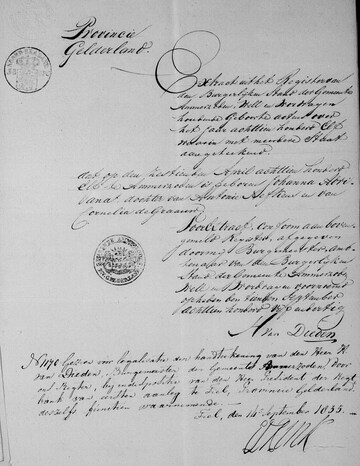 Provincie
Gelderland.
Extract uit het Register van
den Burgerlijken Stand der Gemeente
Ammerzoden, Well en Wordragen
houdende Geboorte acten over
het jaar achttien honderd Elf
waarin met meerdere staat
aangeteekend.
dat op den April achttien honderd
Elf te Ammerzoden is geboren Johanna Adri
ana dochter van Antonie en van
Cornelia de Graauw.
Voor Extract conform aan boven
gemeld Register, afgegeven
door mij Burgemeester Ambte
naar van den Burgerlijken
Stand der Gemeente Ammerzoden
Well en Wordragen voornoemd
op heden den September
achttien honderd vijf en dertig
van Deeden
No 1170 Gezien voor legalisatie der handteekening van den Heer H.
van Deeden, Burgemeester der Gemeente Ammerzoden, door
ons Regter, bij indispositie van den Heer President der Regt
bank van eersten aanleg te Tiel, Provincie Gelderland
deszelfs functien waarnemende.
Tiel, den 14 September 1835.